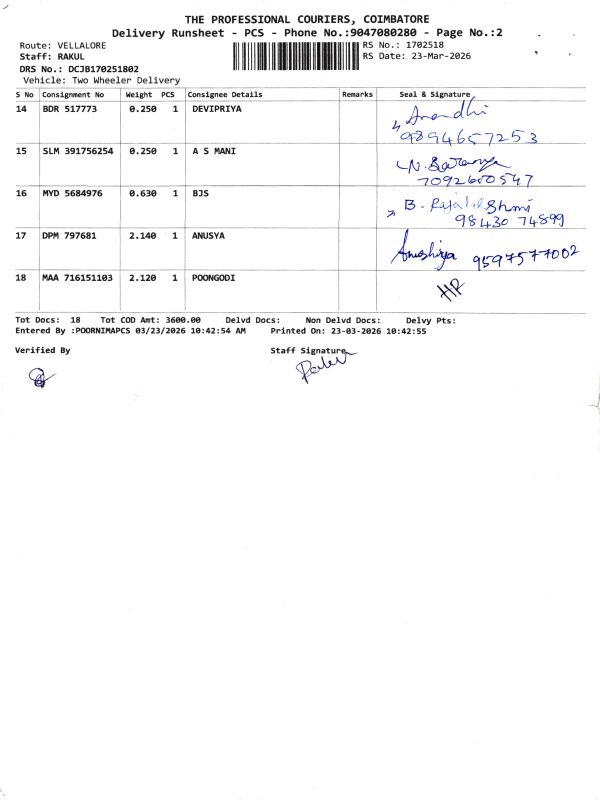 THE PROFESSIONAL COURIERS, COIMBATORE
Delivery Runsheet - PCS - Phone No.:9047080280 - Page No.:2
Route: VELLALORE
RS No.: 1702518
Staff: RAKUL
RS Date: 23-Mar-2026
DRS No.: DCJB170251802
Vehicle: Two Wheeler Delivery
S No Consignment No Weight PCS Consignee Details Remarks Seal & Signature
14 BDR 517773 0.250 1 DEVIPRIYA
9894657253
15 SLM 391756254 0.250 1 A S MANI
7092600547
16 MYD 5684976 0.630 1 BJS B. Rajalakshmi
98430 74899
17 DPM 797681 2.140 1 ANUSYA Anushiya 9597577002
18 MAA 716151103 2.120 1 POONGODI
Tot Docs: 18 Tot COD Amt: 3600.00 Delvd Docs: Non Delvd Docs: Delvy Pts:
Entered By :POORNIMAPCS 03/23/2026 10:42:54 AM Printed On: 23-03-2026 10:42:55
Verified By Staff Signature